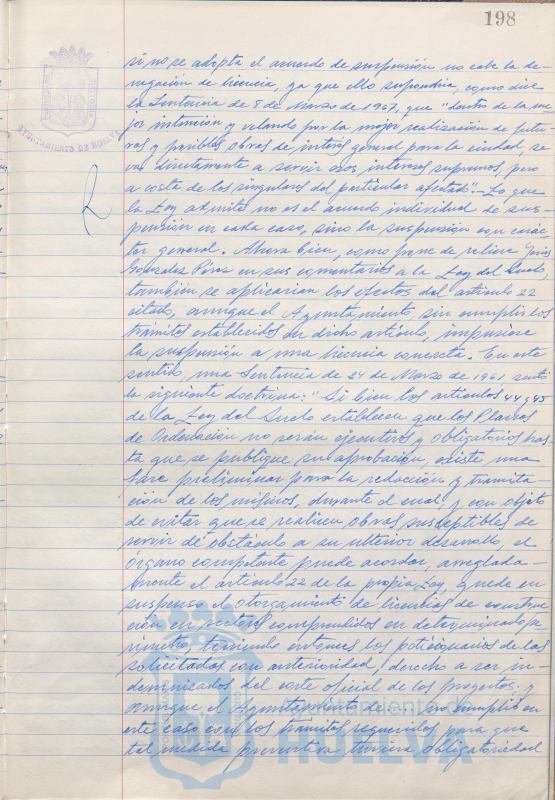 198
AYUNTAMIENTO DE HUELVA
si no se adopta el acuerdo de suspensión no cabe la de-
negación de licencia, ya que ello supondría, como dice
la Sentencia de 8 de Marzo de 1967, que "dentro de la me-
jor intención y velando por la mejor realización de futu-
ras y posibles obras de interés general para la ciudad, se
va directamente a servir esos intereses supremos, pero
a costa de los singulares del particular afectado".- Lo que
la Ley admite no es el acuerdo individual de sus-
pensión en cada caso, sino la suspensión con carác-
ter general. Ahora bien, como pone de relieve Jesús
González Pérez en sus comentarios a la Ley del Suelo,
también se aplicarían los efectos del artículo 22
citado, aunque el Ayuntamiento, sin cumplir los
trámites establecidos en dicho artículo, impusiere
la suspensión a una licencia concreta. En este
sentido, una Sentencia de 24 de Marzo de 1961 sentó
la siguiente doctrina: "Si bien los artículos 44 y 45
de la Ley del Suelo establecen que los Planes
de Ordenación no serán ejecutivos y obligatorios has-
ta que se publique su aprobación, existe una
fase preliminar para la redacción y tramita-
ción de los mismos, durante el cual, y con objeto
de evitar que se realicen obras susceptibles de
servir de obstáculo a su ulterior desarrollo, el
órgano competente puede acordar, arreglada-
mente el artículo 22 de la propia Ley, quede en
suspenso el otorgamiento de licencias de construc-
ción en sectores comprendidos en determinado pe-
rímetro, teniendo entonces los peticionarios de las
solicitadas con anterioridad, derecho a ser in-
demnizados del coste oficial de los proyectos; y
aunque el Ayuntamiento de no cumplió en
este caso con los trámites requeridos para que
tal medida preventiva tuviera obligatoriedad
Ayuntamiento de
HUELVA